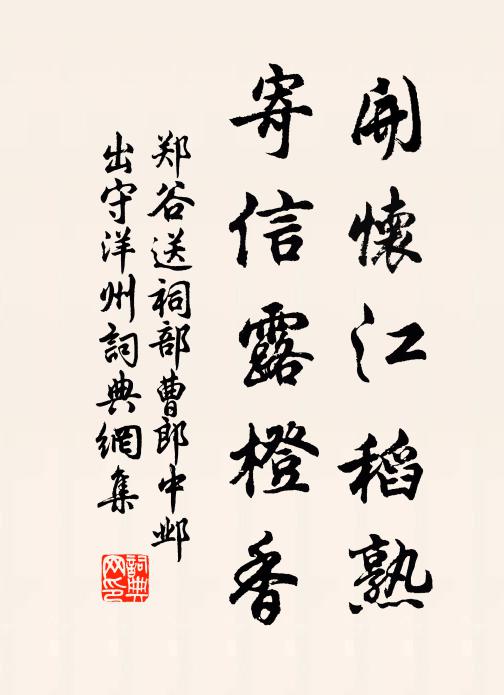 開懷江稻熟
寄信露橙香
郑谷送祠部曹郎中邺
出守洋州詞典網集
詞典
网印